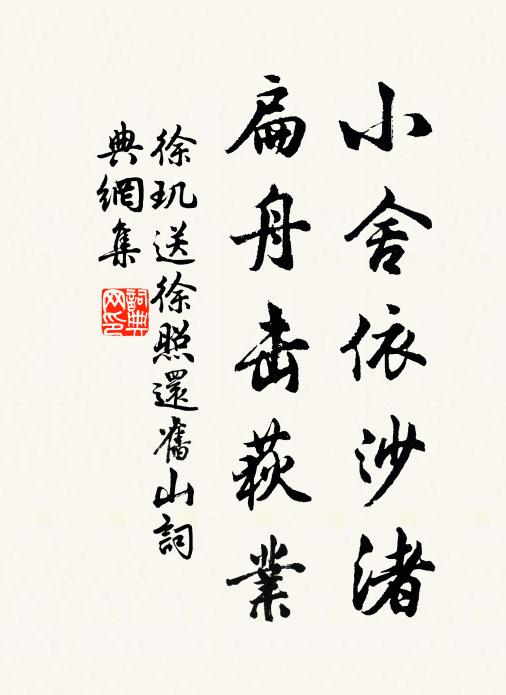 小舍依沙渚
扁舟击萩業
徐玑送徐照還舊山詞
典網集
詞典
网印